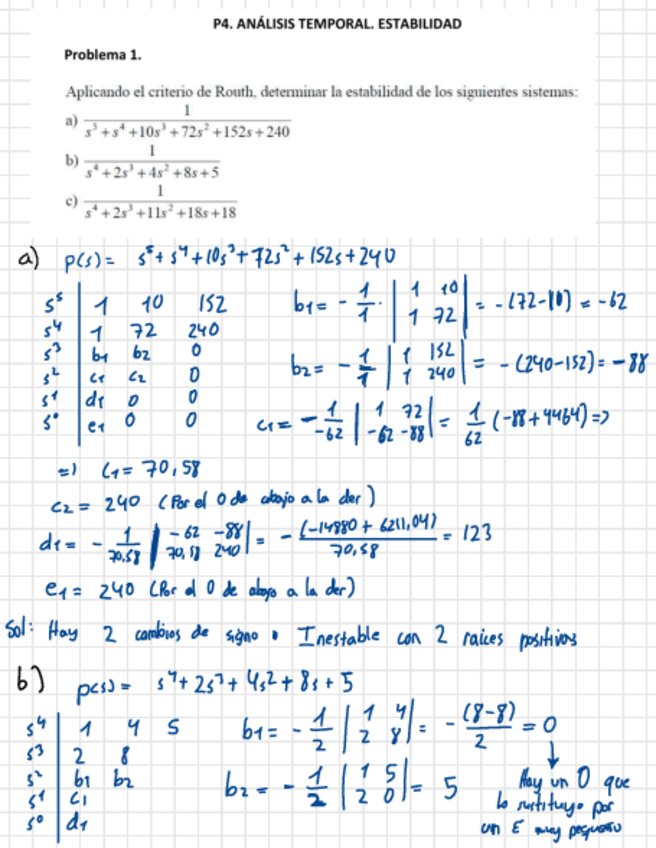 P4. ANÁLISIS TEMPORAL. ESTABILIDAD
Problema 1.
Aplicando el criterio de Routh, determinar la estabilidad de los siguientes sistemas:
a) 1 / (s⁵+s⁴+10s³+72s²+152s+240)
b) 1 / (s⁴+2s³+4s²+8s+5)
c) 1 / (s⁴+2s³+11s²+18s+18)
a) p(s)= s⁵+s⁴+10s³+72s²+152s+240
s⁵ | 1 10 152
s⁴ | 1 72 240
s³ | b1 b2 0
s² | c1 c2 0
s¹ | d1 0 0
s⁰ | e1 0 0
b1= - 1/1 · | 1 10 ; 1 72 | = -(72-10) = -62
b2= - 1/1 | 1 152 ; 1 240 | = -(240-152)= -88
c1= - 1/-62 | 1 72 ; -62 -88 | = 1/62 (-88+4464) =>
=> C1= 70,58
c2= 240 (Por el 0 de abajo a la der)
d1= - 1/70,58 | -62 -88 ; 70,58 240 | = - (-14880 + 6211,04) / 70,58 = 123
e1= 240 (Por el 0 de abajo a la der)
Sol: Hay 2 cambios de signo • Inestable con 2 raíces positivas
b) p(s)= s⁴+2s³+4s²+8s+5
s⁴ | 1 4 5
s³ | 2 8
s² | b1 b2
s¹ | c1
s⁰ | d1
b1= - 1/2 | 1 4 ; 2 8 | = - (8-8)/2 = 0
b2= - 1/2 | 1 5 ; 2 0 | = 5
↓
Hay un 0 que
lo sustituyo por
un ε muy pequeño